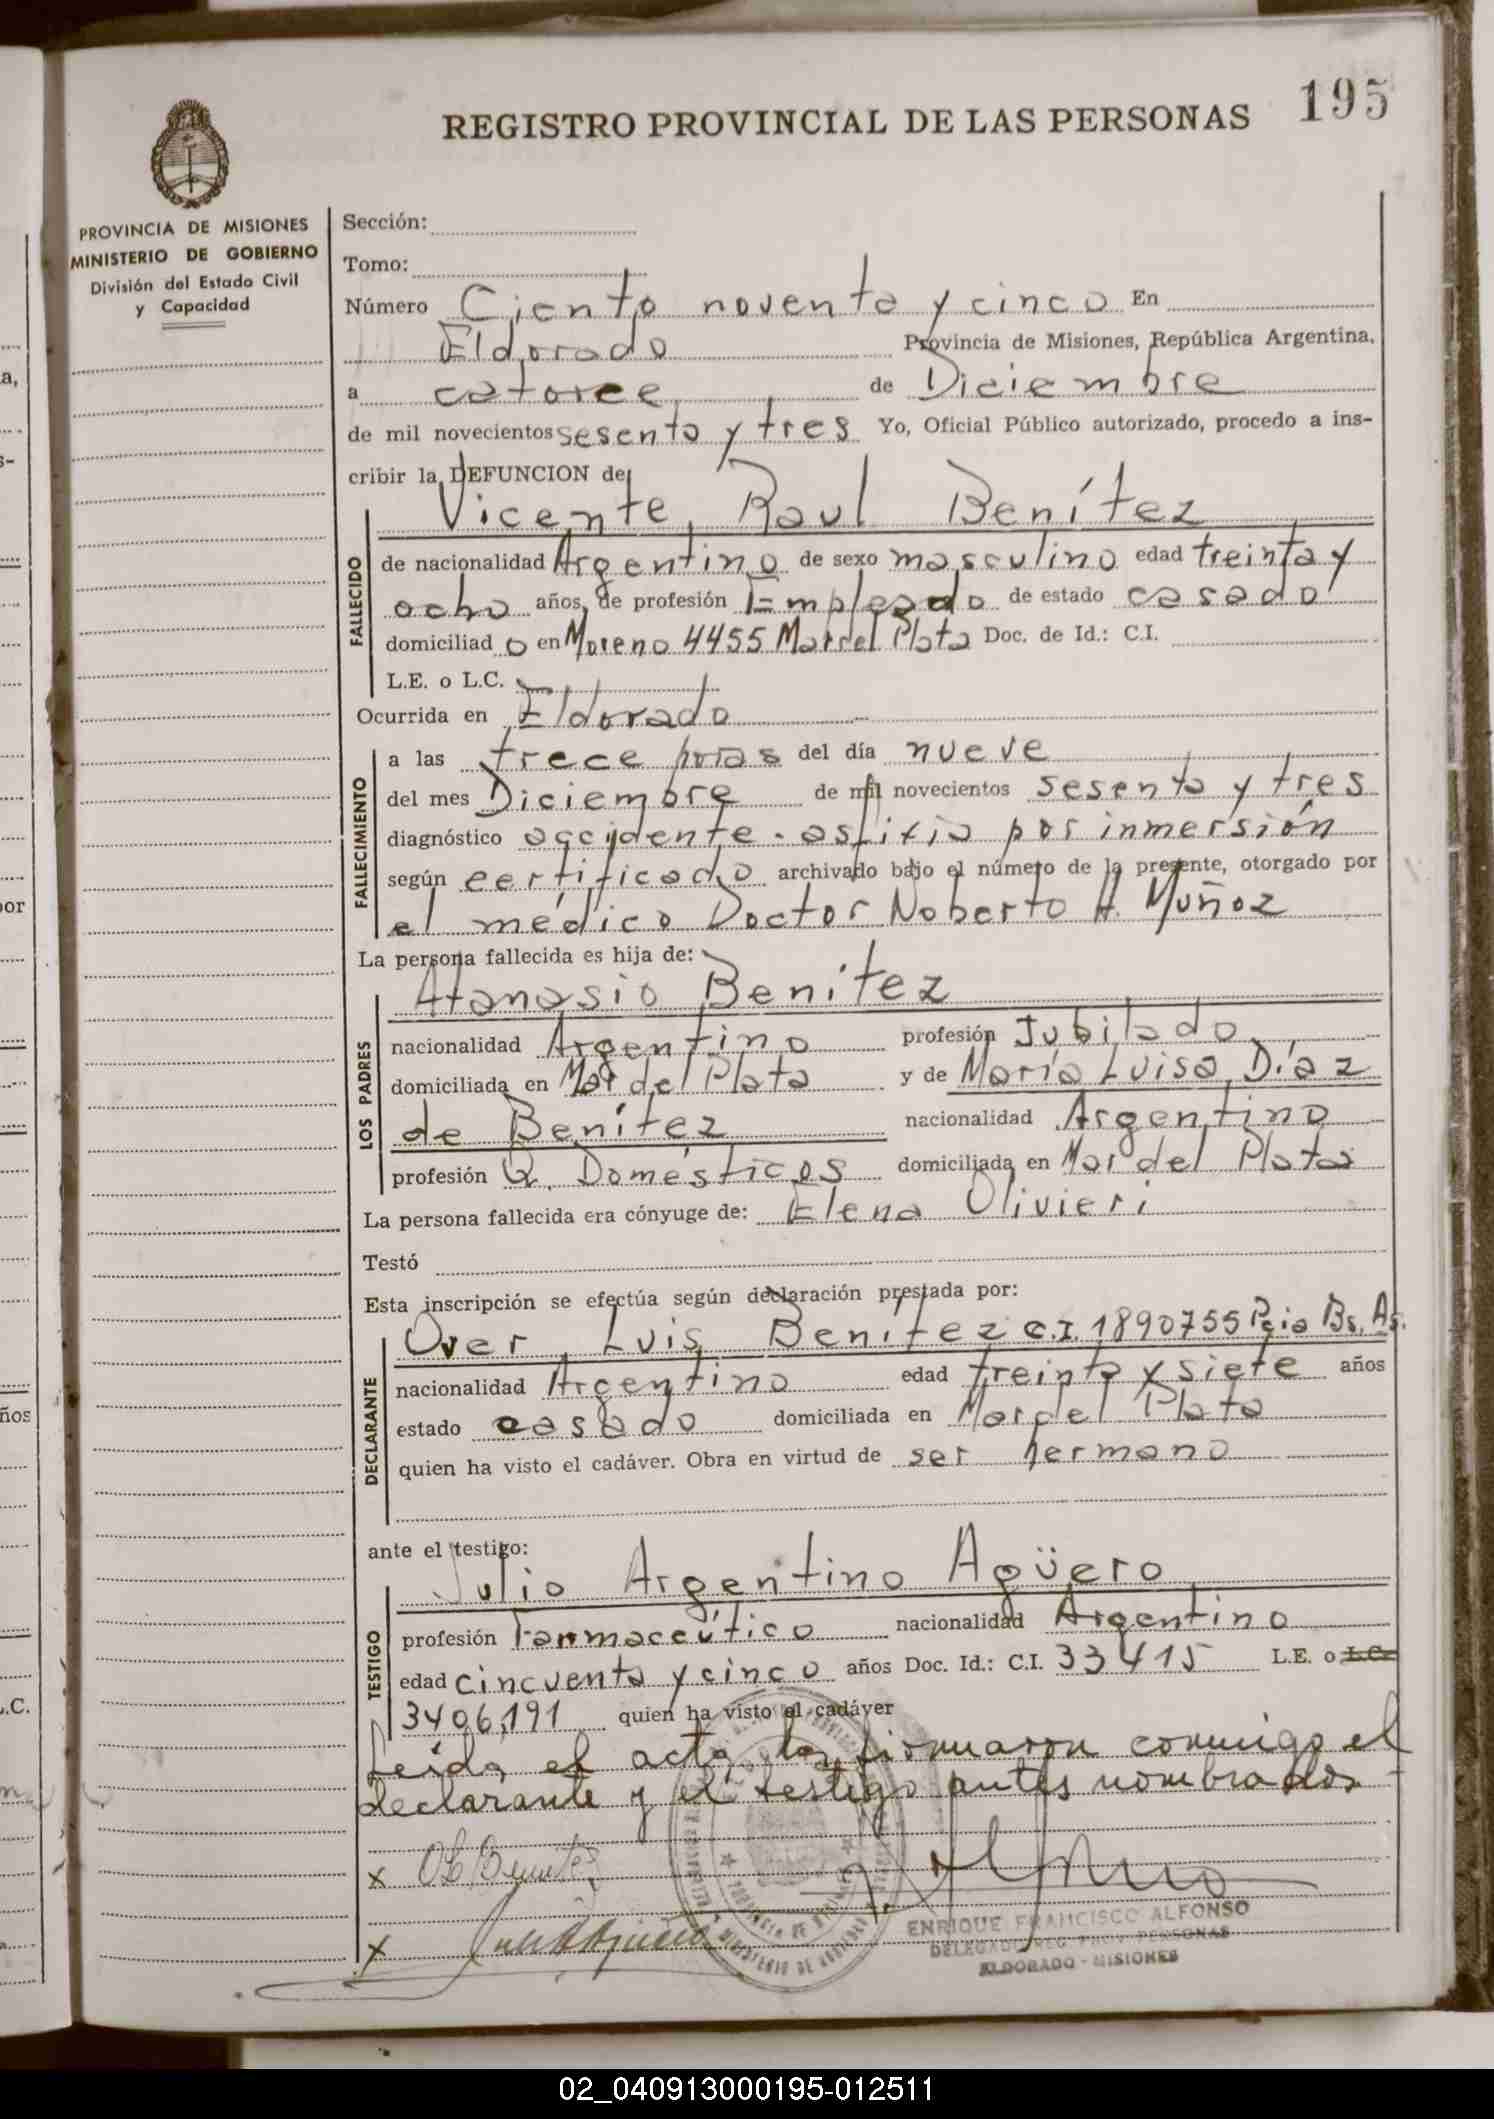 REGISTRO PROVINCIAL DE LAS PERSONAS 195
PROVINCIA DE MISIONES
MINISTERIO DE GOBIERNO
División del Estado Civil
y Capacidad
Sección:
Tomo:
Número Ciento noventa y cinco En
Eldorado Provincia de Misiones, República Argentina,
a catorce de Diciembre
de mil novecientos sesenta y tres Yo, Oficial Público autorizado, procedo a ins-
cribir la DEFUNCION de
Vicente Raul Benítez
FALLECIDO
de nacionalidad Argentino de sexo masculino edad treinta y
ocho años, de profesión Empleado de estado casado
domiciliad o en Moreno 4455 Mar del Plata Doc. de Id.: C.I.
L.E. o L.C.
Ocurrida en Eldorado
FALLECIMIENTO
a las trece horas del día nueve
del mes Diciembre de mil novecientos sesenta y tres
diagnóstico accidente - asfixia por inmersión
según certificado archivado bajo el número de la presente, otorgado por
el médico Doctor Noberto H. Muñoz
La persona fallecida es hija de:
LOS PADRES
Atanasio Benítez
nacionalidad Argentino profesión Jubilado
domiciliada en Mar del Plata y de María Luisa Díaz
de Benítez nacionalidad Argentina
profesión Q. Domésticos domiciliada en Mar del Plata
La persona fallecida era cónyuge de: Elena Olivieri
Testó
Esta inscripción se efectúa según declaración prestada por:
DECLARANTE
Over Luis Benítez C.I. 1890755 Pcia Bs. As.
nacionalidad Argentino edad treinta y siete años
estado casado domiciliada en Mar del Plata
quien ha visto el cadáver. Obra en virtud de ser hermano
ante el testigo:
TESTIGO
Julio Argentino Agüero
profesión Farmaceútico nacionalidad Argentino
edad cincuenta y cinco años Doc. Id.: C.I. 33415 L.E. o L.C.
3406191 quien ha visto el cadáver
Leída el acta, la firmaron conmigo el
declarante y el testigo antes nombrados
x
x
ENRIQUE FRANCISCO ALFONSO
DELEGADO REG. PROV. PERSONAS
ELDORADO - MISIONES
02_040913000195-012511